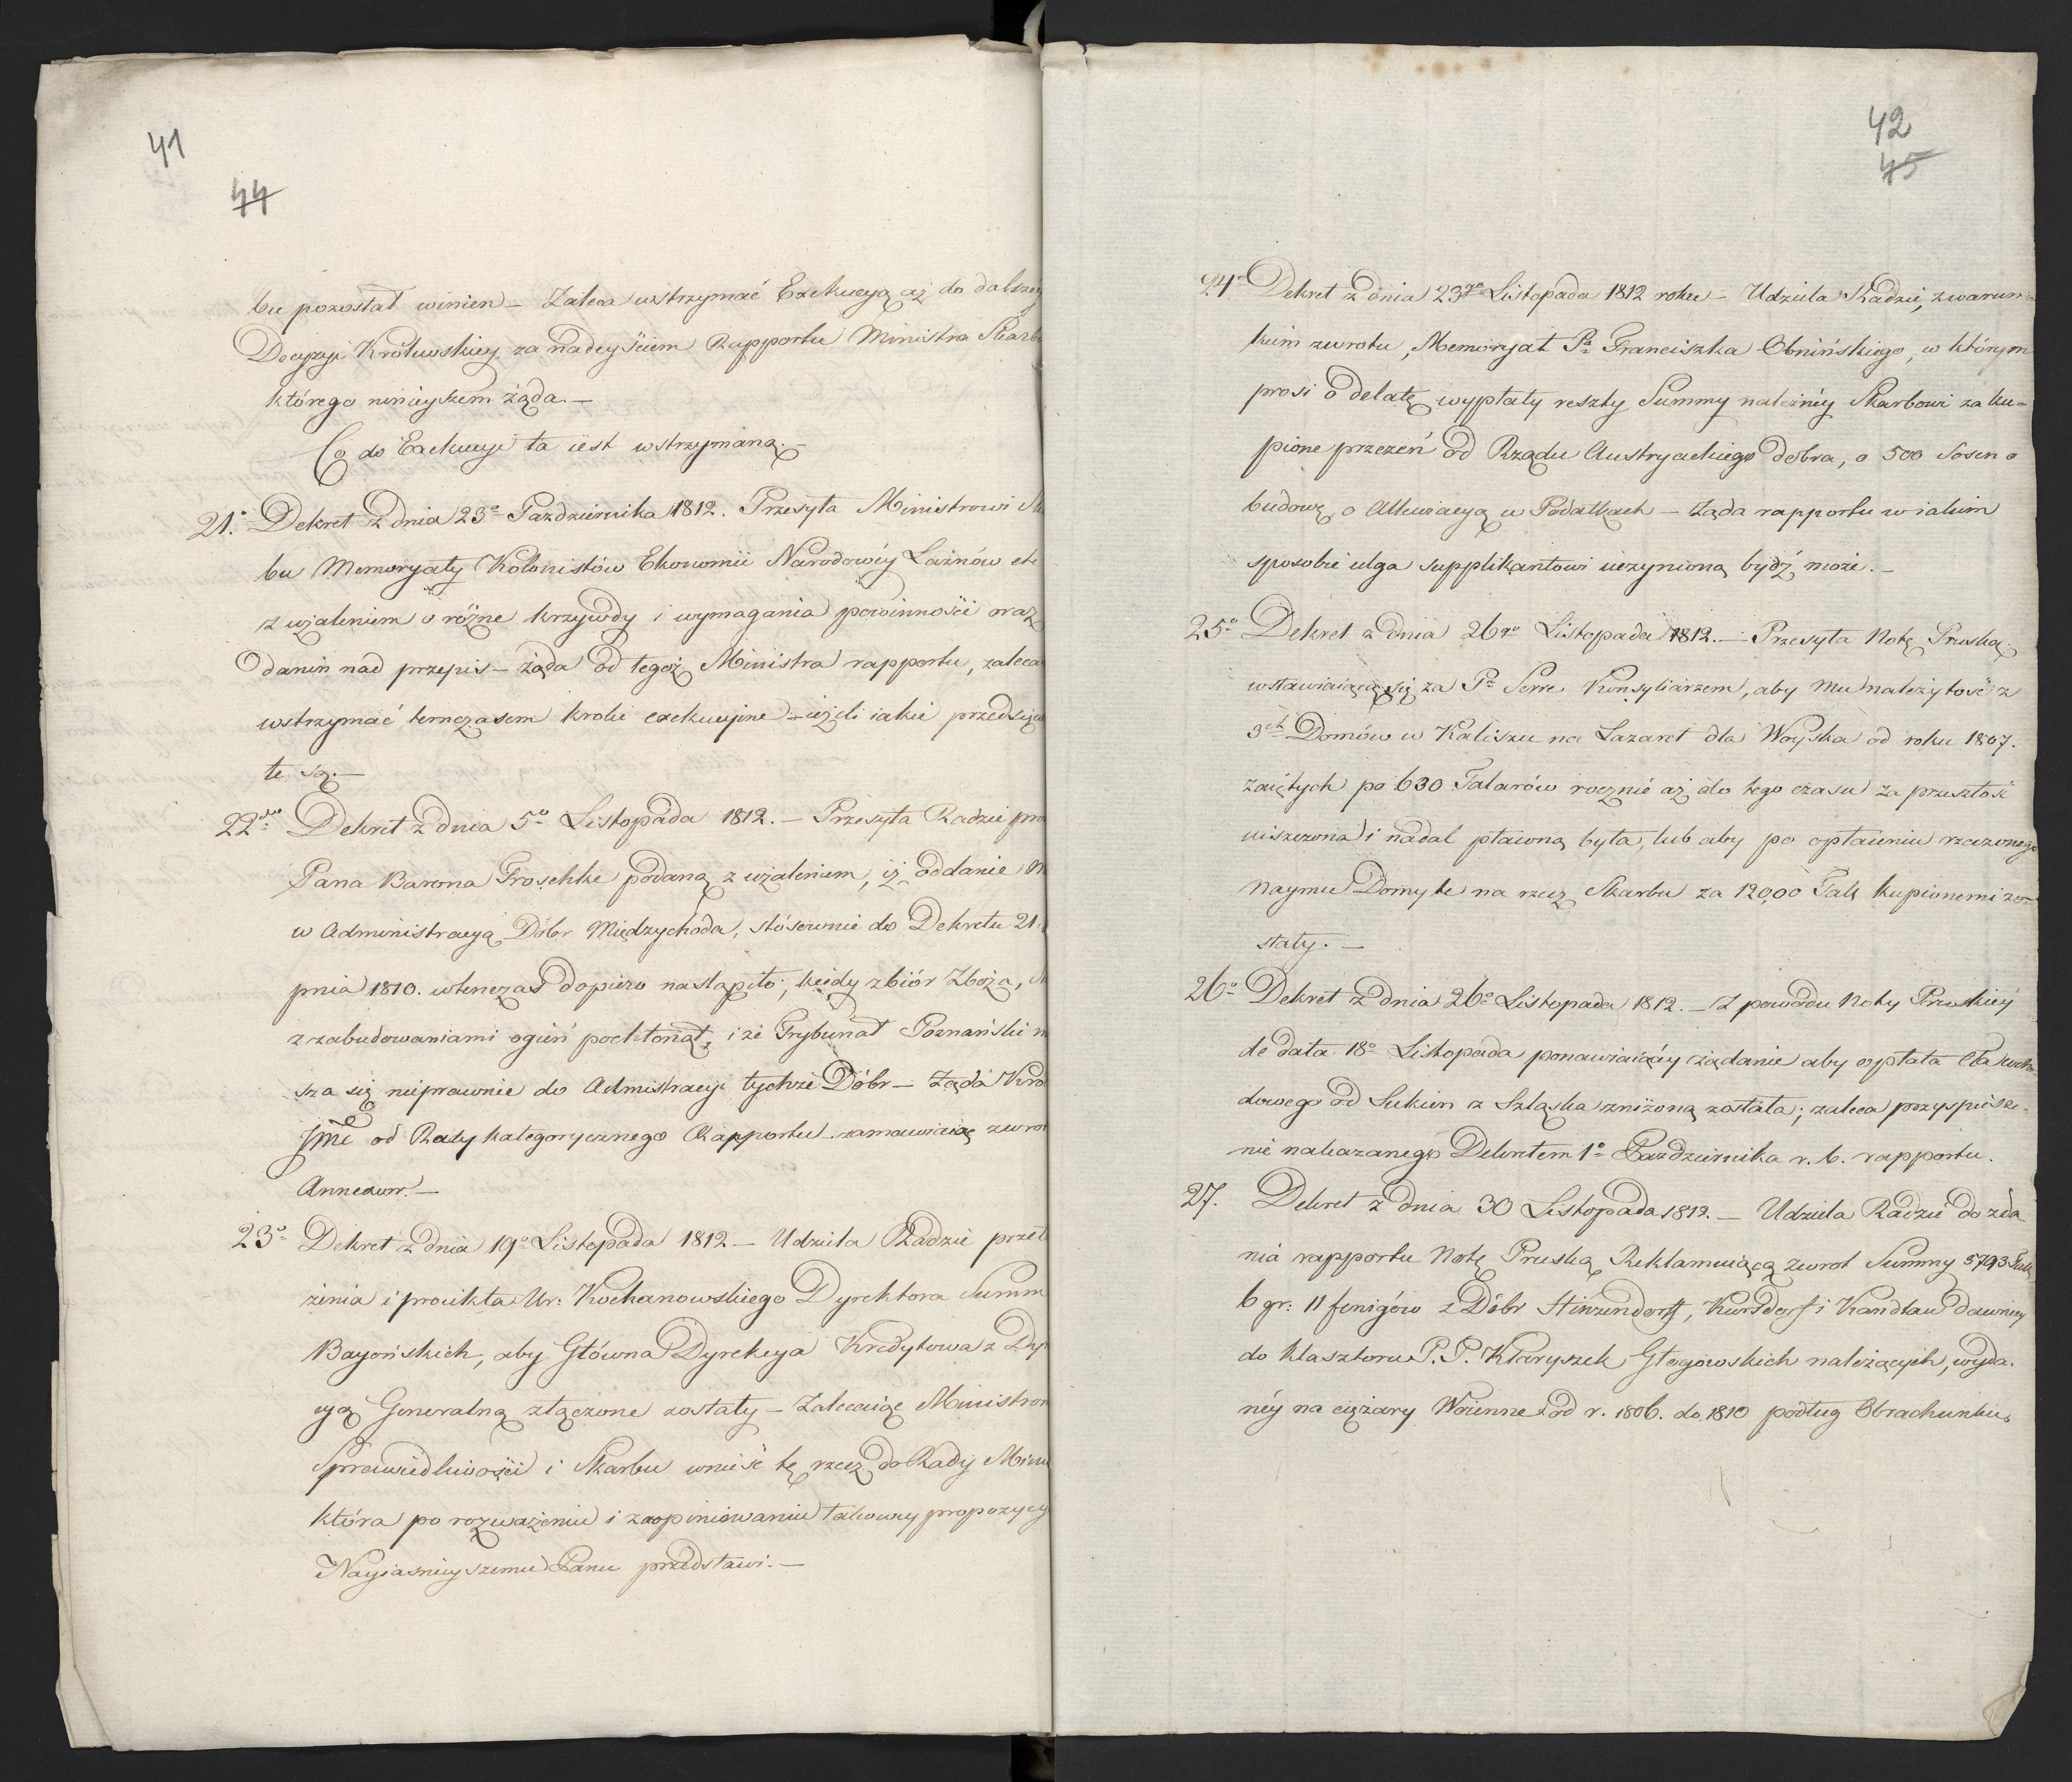 41
44
bu pozostał winien – Zaleca wstrzymać Exekucyą aż do dalszey
Decyzyi Królewskiey za nadeyściem Rapportu Ministra Skarb
którego ninieyszem żąda. –
Co do Exekucyi ta iest wstrzymaną. –
21.° Dekret z dnia 23° Października 1812. Przesyła Ministrowi Ska
bu Memoryały Kolonistów Ekonomii Narodowéy Łaznów etc
z użaleniem o różne krzywdy i wymagania powinności oraz
Danin nad przepis – żąda od tegoż Ministra rapportu, zaleca
wstrzymać temczasem kroki exekucyine – ieżeli iakie przedsięw
te są. –
22do Dekret z dnia 5° Listopada 1812. – Przesyła Radzie pro
Pana Barona Troschke podaną z użaleniem, iż oddanie M
w Administracyą Dóbr Międzychoda, stósownie do Dekretu 21
pnia 1810. wtenczas dopiero nastąpiło, kiedy zbiór Zboża,
z zabudowaniami ogień pochłonął, i że Trybunał Poznański m
sza się nieprawnie do Admistracyi tychże Dóbr – Żąda Kró
JMć od Rady kategorycznego Rapportu zamawiaiąc zwrot
Annexow. –
23° Dekret z dnia 19° Listopada 1812 – Udziela Radzie przeł
żenia i proiekta Ur: Kochanowskiego Dyrektora Summ
Bayońskich, aby Główna Dyrekcya Kredytowa z Dyr
cyą Generalną złączone zostały – Zalecaiąc Ministrom
Sprawiedliwości i Skarbu wnieść tę rzecz do Rady Minis
która po rozważeniu i zaopiniowaniu takowey propozycy
Nayiaśnieyszemu Panu przedstawi. –
42
45
24° Dekret z dnia 23go Listopada 1812 roku – Udziela Radzie, z warun-
kiem zwrotu, Memoryał Pa Franciszka Obnińskiego, w którym
prosi o delatę wypłaty reszty Summy należnéy Skarbowi za ku-
pione przezeń od Rządu Austryackiego dobra, o 500 Sosen o
budowę, o Allewiacyą w Podatkach – Żąda rapportu w iakim
sposobie ulga supplikantowi uczynioną bydź może. –
25° Dekret z dnia 26go Listopada 1812. – Przesyła Notę Pruską,
wstawiaiącą się za Pa Serre Konsyliarzem, aby mu należytość z
3ch Domów w Kaliszu na Lazaret dla Woyska od roku 1807.
zaiętych po 630 Talarów rocznie aż do tego czasu za przeszłość
uiszczona i nadal płacona była, lub aby po opłaceniu rzeczonego
naymu Domy te na rzecz Skarbu za 12000 Tal: kupionemi zo-
stały. –
26° Dekret z dnia 26° Listopada 1812. – Z powodu Noty Pruskiéy
de data 18° Listopada ponawiaiącéy żądanie aby opłata Cła wcho-
dowego od Sukien z Szląska zniżoną została; zaleca przyspiesze-
nie nakazanego Dekretem 1° Października r. b. rapportu.
27. Dekret z dnia 30 Listopada 1812. – Udziela Radzie do zda
nia rapportu Notę Pruską Reklamuiącą zwrot Summy 5793 Tal:
6 gr: 11 fenigów z Dóbr Hinzendorff, Kursdorf i Kandlau dawniey
do klasztoru P. P. Klaryszek Głogowskich należących, wyda-
néy na ciężary Woienne od r. 1806. do 1810 podług Obrachunku,